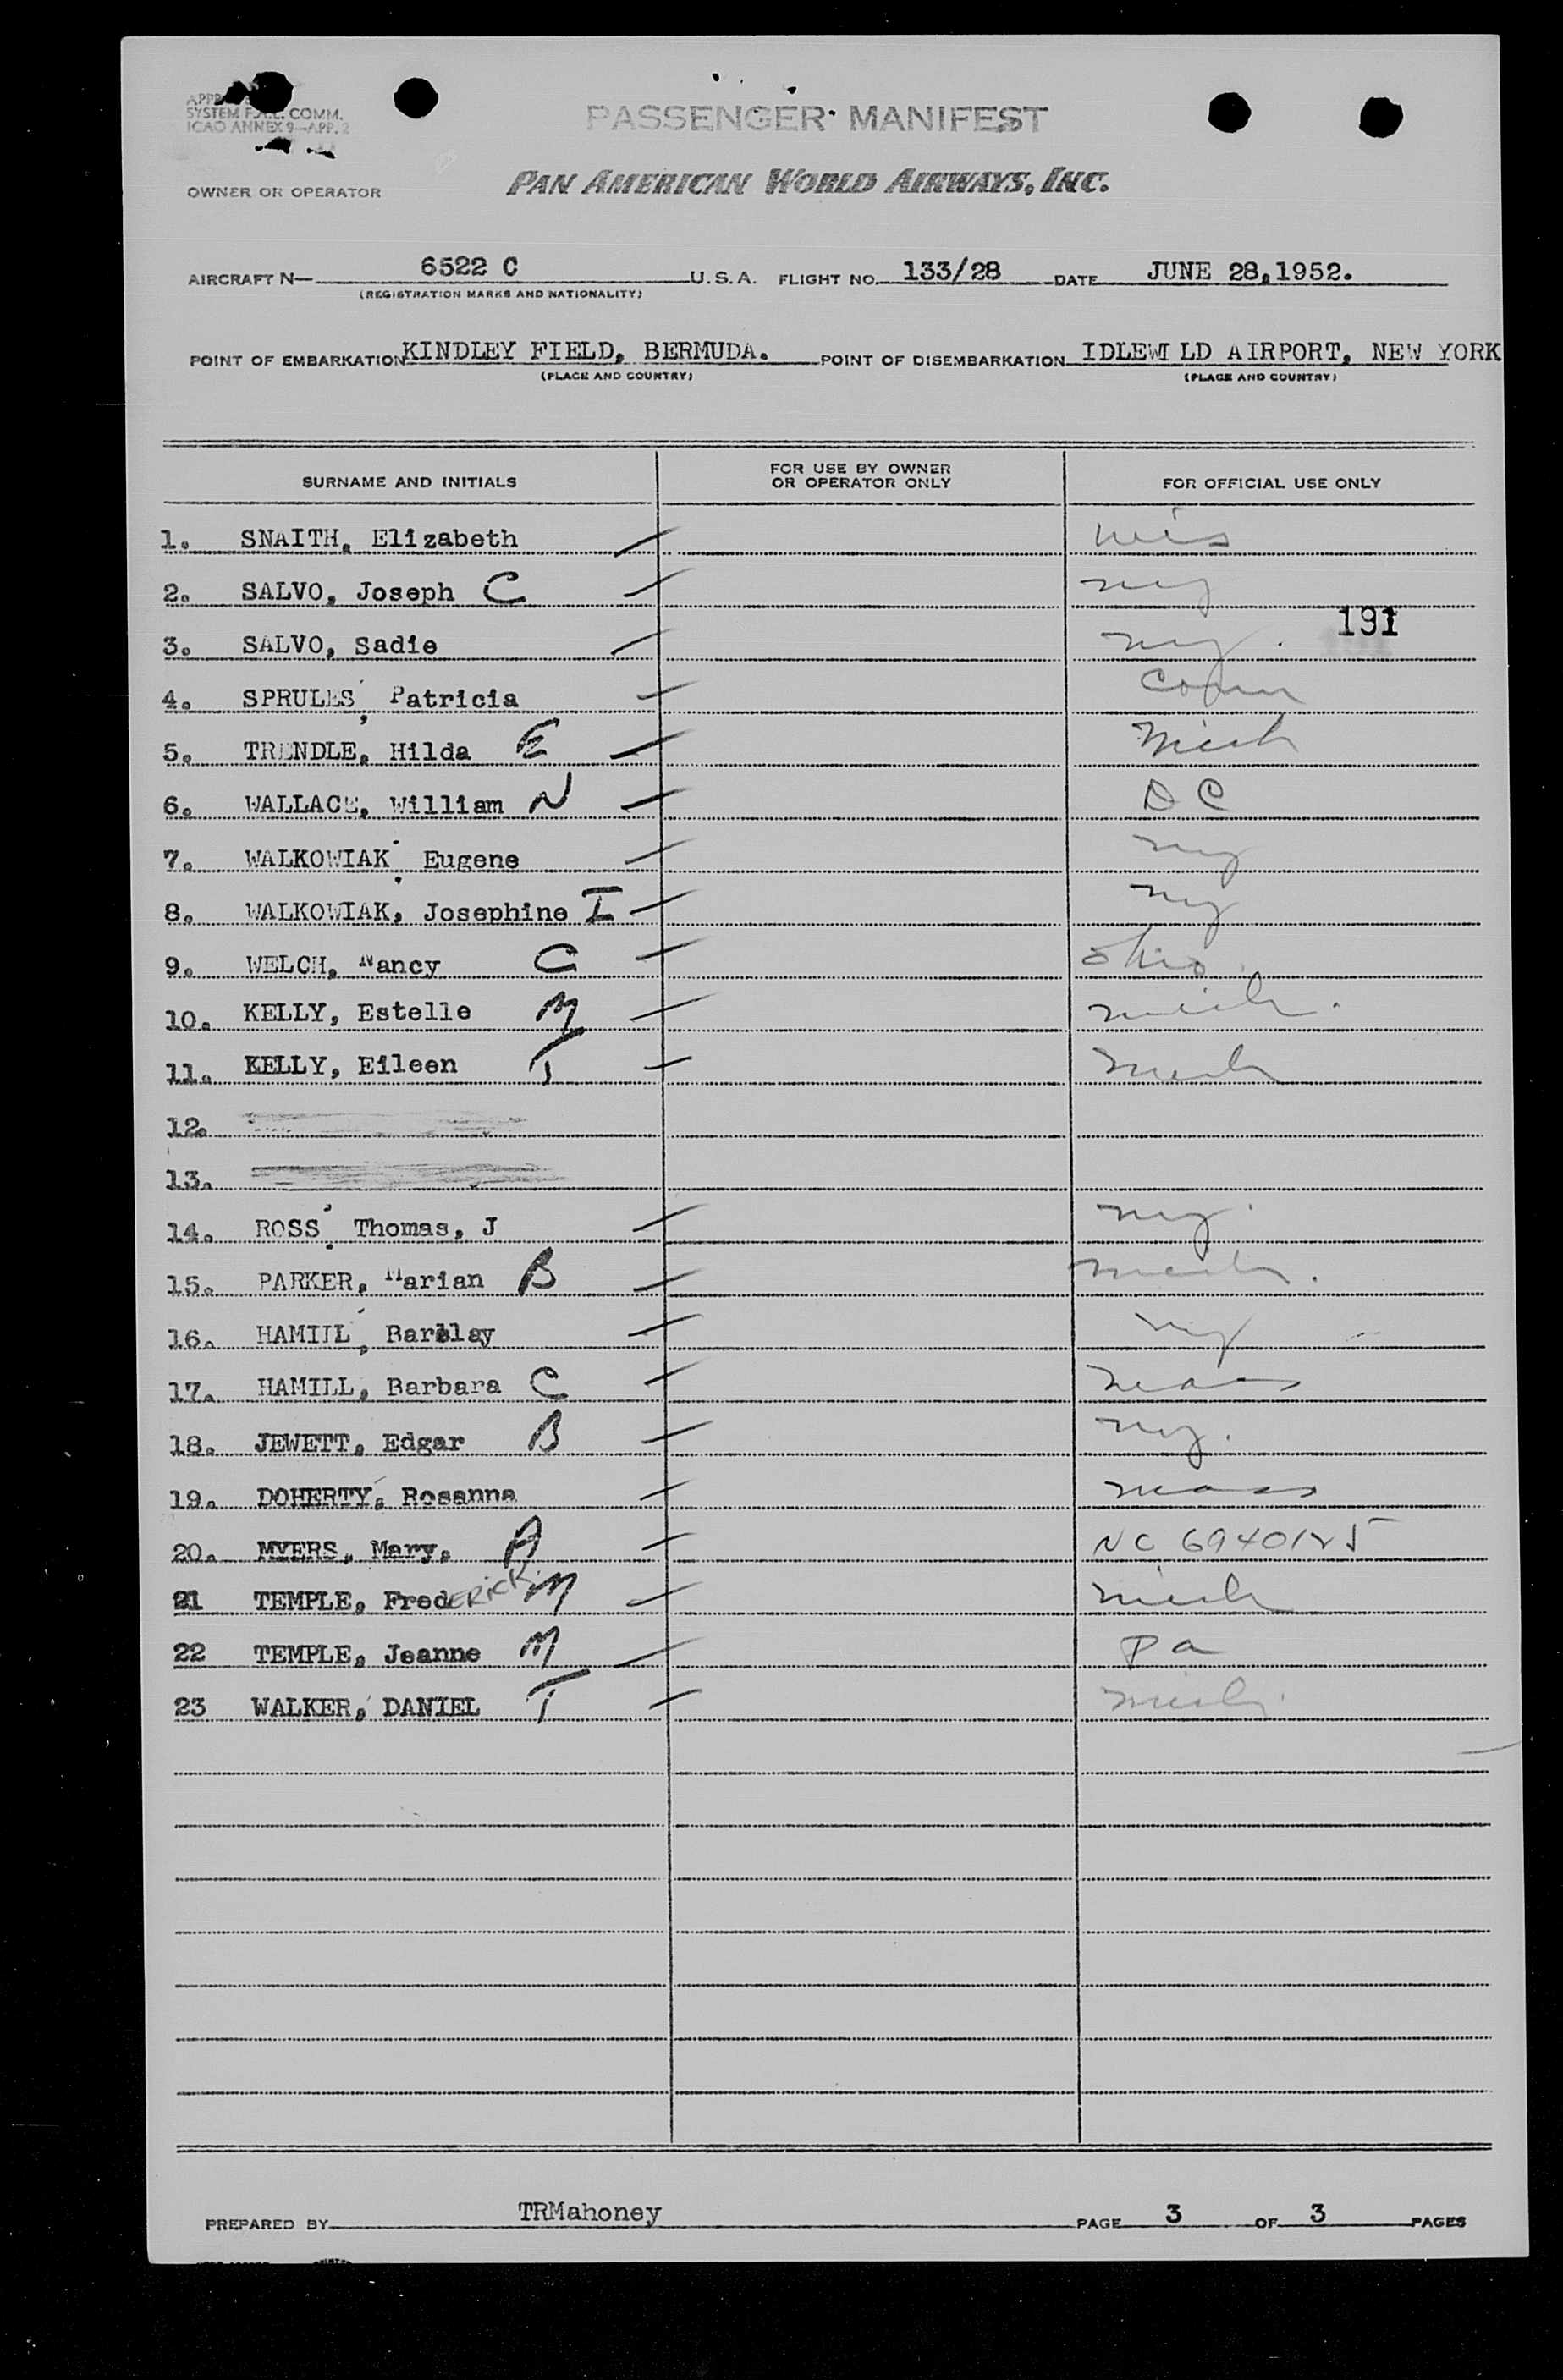 SYSTEM COMM.
ICAO ANNEX 9—APP. 2
PASSENGER MANIFEST
OWNER OR OPERATOR
PAN AMERICAN WORLD AIRWAYS, INC.
AIRCRAFT N— 6522 C U.S.A. FLIGHT NO. 133/28 DATE JUNE 28,1952.
(REGISTRATION MARKS AND NATIONALITY)
POINT OF EMBARKATION KINDLEY FIELD, BERMUDA. POINT OF DISEMBARKATION IDLEWILD AIRPORT, NEW YORK
(PLACE AND COUNTRY) (PLACE AND COUNTRY)
SURNAME AND INITIALS FOR USE BY OWNER OR OPERATOR ONLY FOR OFFICIAL USE ONLY
1. SNAITH, Elizabeth
2. SALVO, Joseph C ny
191
3. SALVO, Sadie ny.
4. SPRULES, Patricia Conn
5. TRENDLE, Hilda E Mich
6. WALLACE, William N D C
7. WALKOWIAK, Eugene ny
8. WALKOWIAK, Josephine I ny
9. WELCH, Nancy C Ohio
10. KELLY, Estelle M mich.
11. KELLY, Eileen T Mich
12.
13.
14. ROSS, Thomas, J ny
15. PARKER, Marian B mich.
16. HAMILL, Barclay ny
17. HAMILL, Barbara C mass
18. JEWETT, Edgar B ny.
19. DOHERTY, Rosanna mass
20. MYERS, Mary, A NC 6940125
21 TEMPLE, FredERICK. M mich
22 TEMPLE, Jeanne M Pa
23 WALKER, DANIEL T mich.
PREPARED BY TRMahoney PAGE 3 OF 3 PAGES